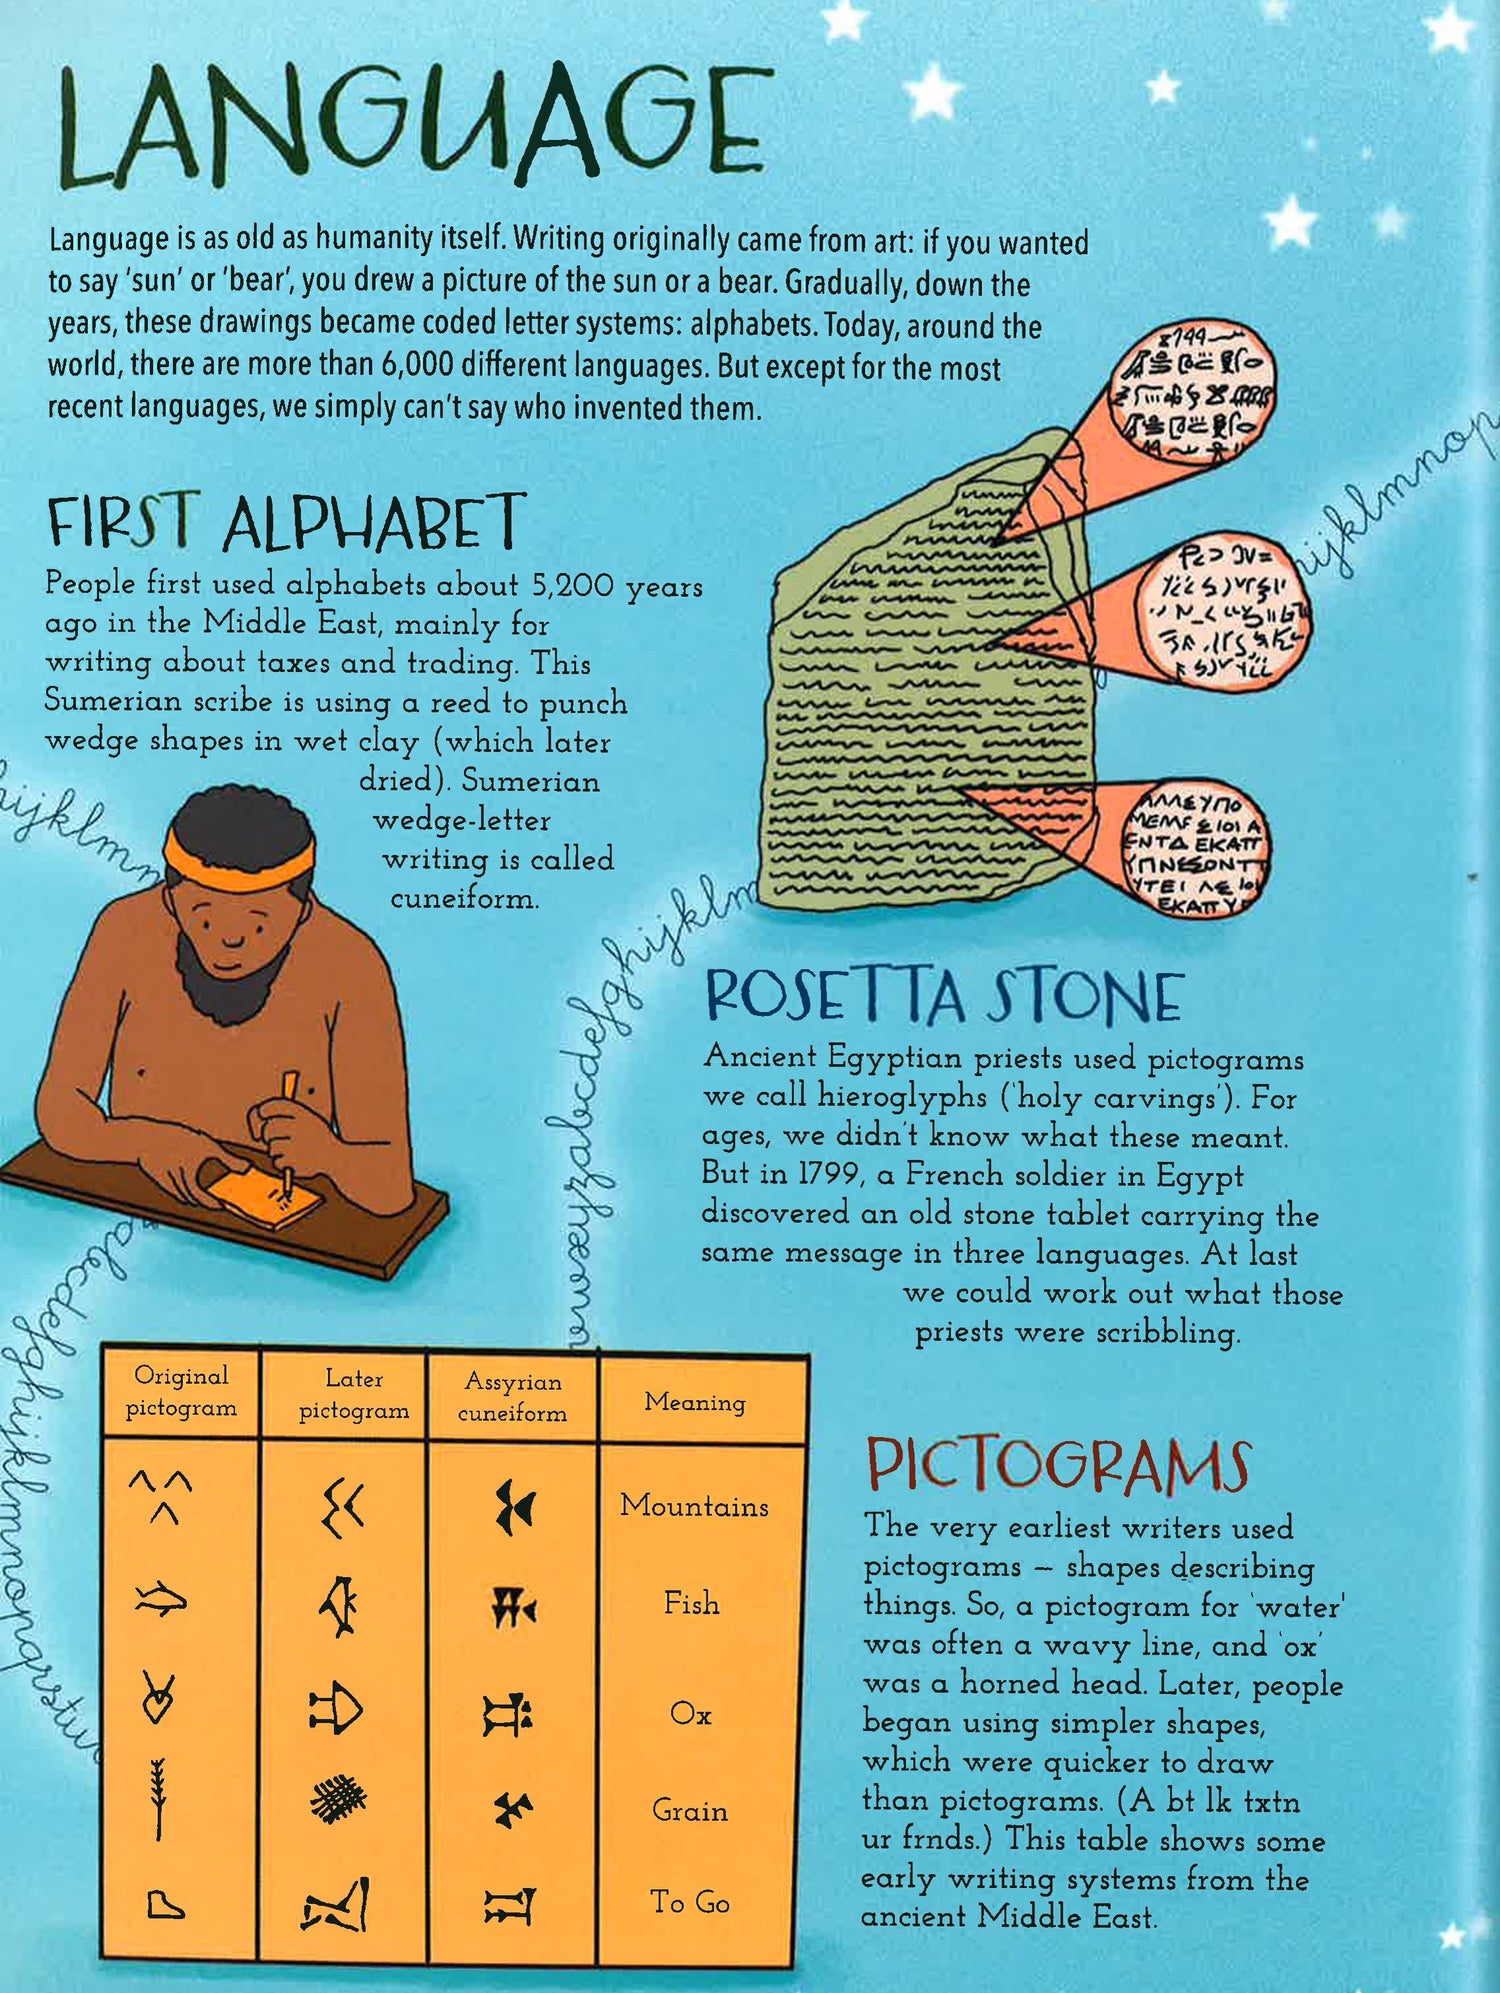 LANGUAGE
Language is as old as humanity itself. Writing originally came from art: if you wanted
to say 'sun' or 'bear', you drew a picture of the sun or a bear. Gradually, down the
years, these drawings became coded letter systems: alphabets. Today, around the
world, there are more than 6,000 different languages. But except for the most
recent languages, we simply can't say who invented them.
FIRST ALPHABET
People first used alphabets about 5,200 years
ago in the Middle East, mainly for
writing about taxes and trading. This
Sumerian scribe is using a reed to punch
wedge shapes in wet clay (which later
dried). Sumerian
wedge-letter
writing is called
cuneiform.
hijklmnop
hijklm
ROSETTA STONE
Ancient Egyptian priests used pictograms
we call hieroglyphs ('holy carvings'). For
ages, we didn't know what these meant.
But in 1799, a French soldier in Egypt
discovered an old stone tablet carrying the
same message in three languages. At last
we could work out what those
priests were scribbling.
Original
pictogram
Later
pictogram
Assyrian
cuneiform
Meaning
Mountains
Fish
Ox
Grain
To Go
PICTOGRAMS
The very earliest writers used
pictograms – shapes describing
things. So, a pictogram for 'water'
was often a wavy line, and 'ox'
was a horned head. Later, people
began using simpler shapes,
which were quicker to draw
than pictograms. (A bt lk txtn
ur frnds.) This table shows some
early writing systems from the
ancient Middle East.